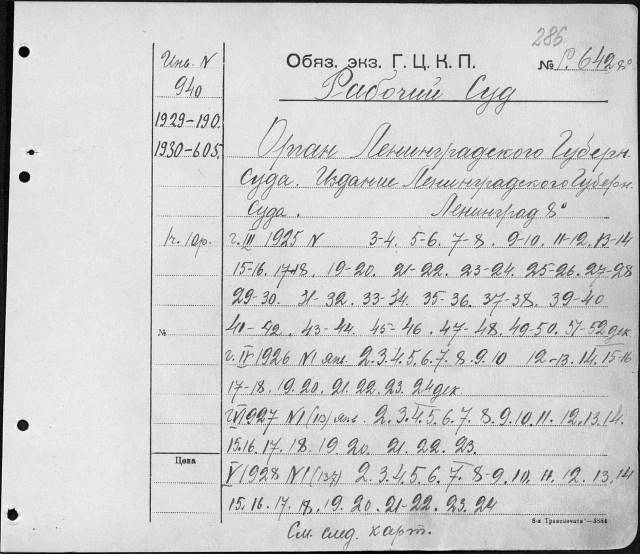 286
Инв. N Обяз. экз. Г. Ц. К. П. № Р. 642 8°
940 Рабочий Суд
1929-190.
1930-605. Орган Ленинградского Губерн.
Суда. Издание Ленинградского Губерн.
Суда. Ленинград 8°
г. III 1925 N 3-4. 5-6. 7-8. 9-10. 11-12. 13-14
15-16. 17-18. 19-20. 21-22. 23-24. 25-26. 27-28
29-30. 31-32. 33-34. 35-36. 37-38. 39-40
№ 41-42. 43-44. 45-46. 47-48. 49-50. 51-52 дек
г. IV 1926 N1 янв. 2.3.4.5.6.7.8.9.10 12-13.14.15-16
17-18. 19.20. 21.22.23. 24 дек.
1927 N1 (113) янв. 2.3.4.5.6.7.8.9.10.11.12.13.14.
15.16.17.18.19.20. 21.22.23.
Цена V 1928 N1 (137) 2.3.4.5.6.7.8-9.10.11.12.13.14
15.16.17.18.19.20.21-22.23.24
8-я Транспечать—3884
См. след. карт.